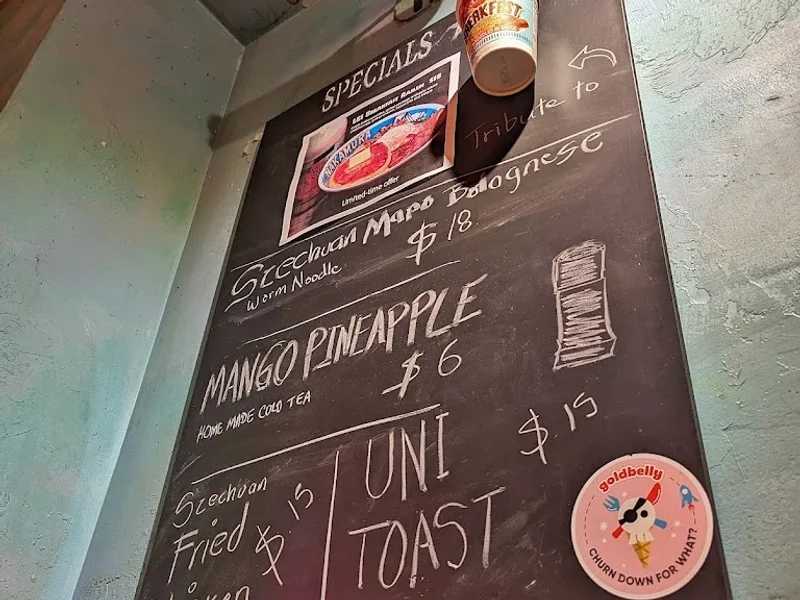 SPECIALS
BREAKFAST
Tribute to
LES Breakfast Ramen $18
NAKAMURA
Limited-time offer
Szechuan Mapo Bolognese
Worm Noodle
$18
MANGO PINEAPPLE
HOME MADE COLD TEA
$6
Szechuan
Fried
$15
UNI
TOAST
$15
goldbelly
CHURN DOWN FOR WHAT?